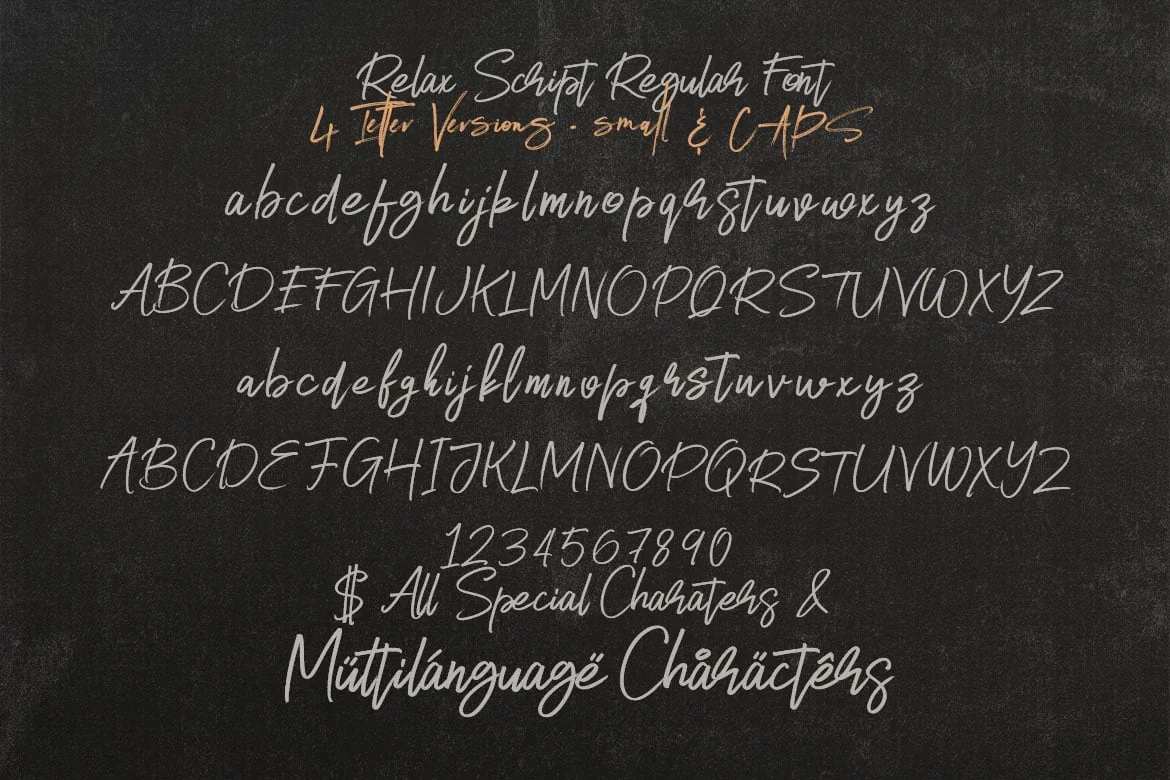 Relax Script Regular Font
4 Letter Versions - small & CAPS
abcdefghijklmnopqrstuvwxyz
ABCDEFGHIJKLMNOPQRSTUVWXYZ
abcdefghijklmnopqrstuvwxyz
ABCDEFGHIJKLMNOPQRSTUVWXYZ
1234567890
$ All Special Charaters &
Müttilánguagë Chåräctêrs